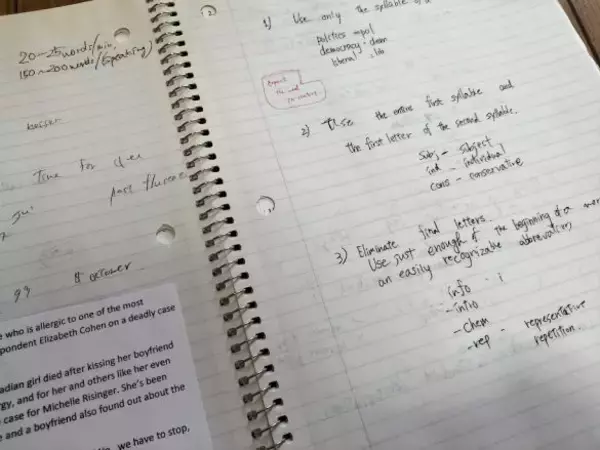 20~25words/min.
150~200words/(speaking)
Time for
past
8 october
99
e who is allergic to one of the most
pondent Elizabeth Cohen on a deadly case
adian girl died after kissing her boyfriend
rgy, and for her and others like her even
case for Michelle Risinger. She's been
e and a boyfriend also found out about the
we have to stop,
2
1) Use only the syllable of a
politics - pol
democracy - dem
liberal - lib
2) Use the entire first syllable and
the first letter of the second syllable.
Subj - Subject
ind - individual
cons - conservative
3) Eliminate final letters.
Use just enough of the beginning of a
an easily recognizable abbreviation,
info
- intro
- chem
- rep - representative
repetition.